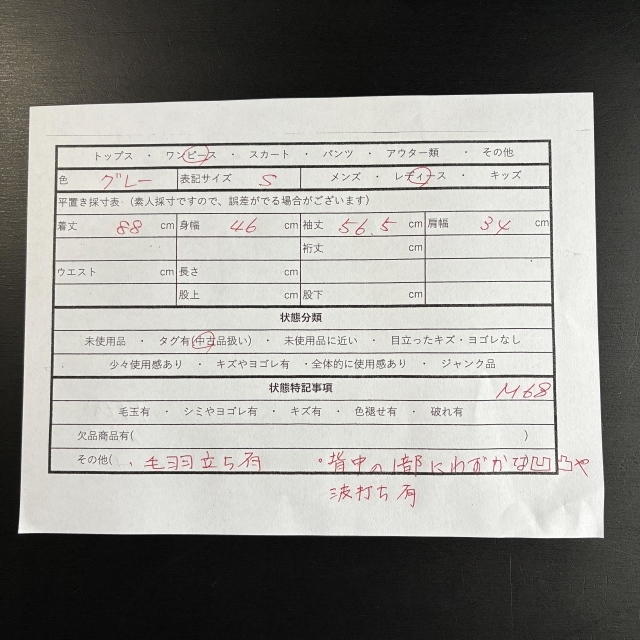 トップス ・ ワンピース ・ スカート ・ パンツ ・ アウター類 ・ その他
色 グレー 表記サイズ S メンズ ・ レディース ・ キッズ
平置き採寸表 (素人採寸ですので、誤差がでる場合がございます)
着丈 88 cm 身幅 46 cm 袖丈 56.5 cm 肩幅 34 cm
裄丈 cm
ウエスト cm 長さ cm
股上 cm 股下 cm
状態分類
未使用品 ・ タグ有(中古品扱い) ・ 未使用品に近い ・ 目立ったキズ・ヨゴレなし
少々使用感あり ・ キズやヨゴレ有 ・全体的に使用感あり ・ ジャンク品
状態特記事項 M68
毛玉有 ・ シミやヨゴレ有 ・ キズ有 ・ 色褪せ有 ・ 破れ有
欠品商品有( )
その他( ・毛羽立ち有 ・背中の1部にわずかな凹凸や
波打ち有